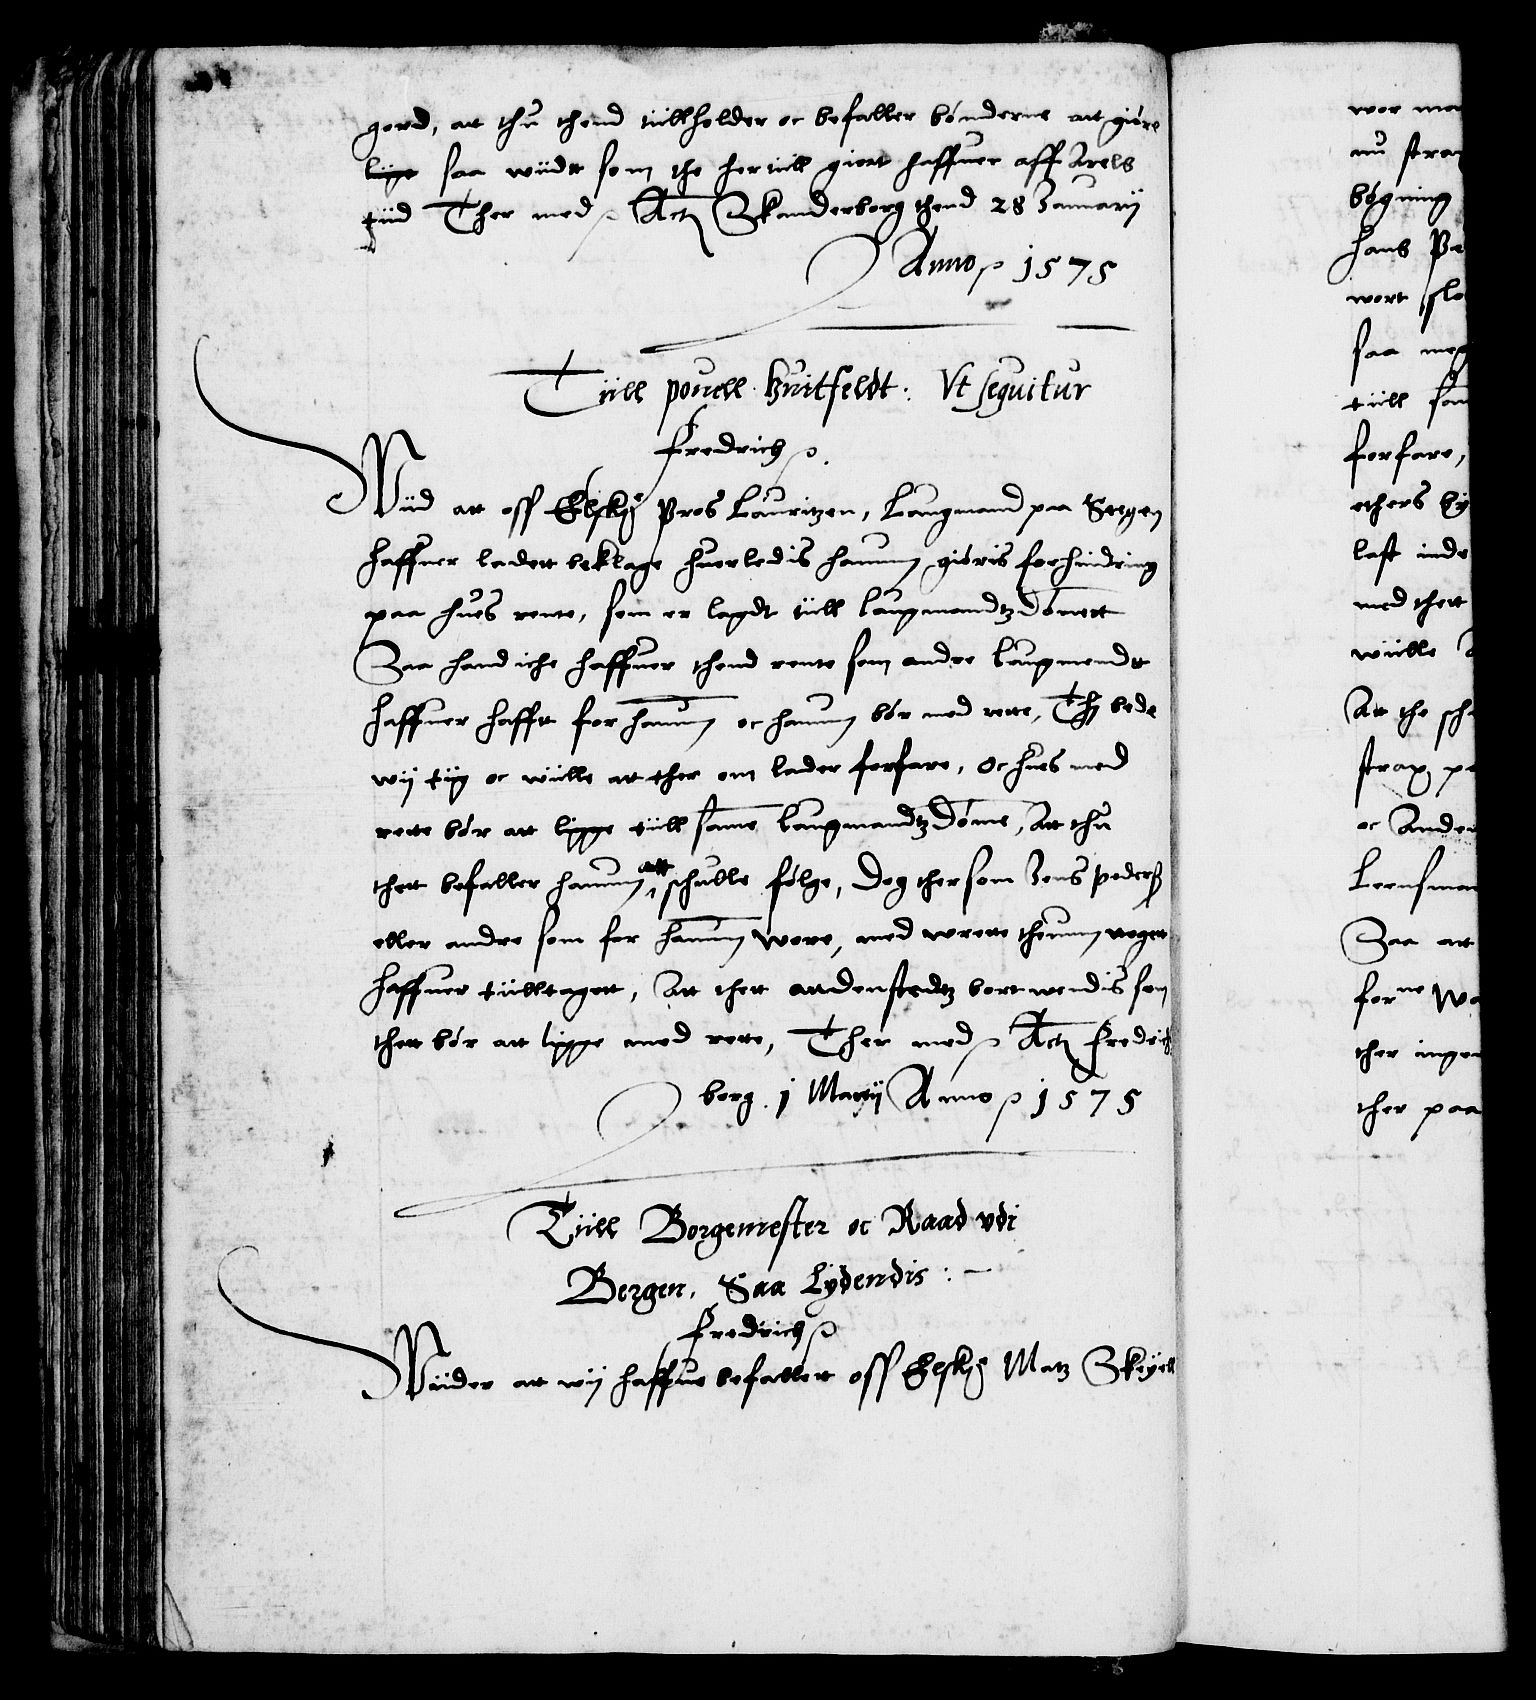 gord, att thu thend tiillholder oc befaller bønderne att giøre
liige saa wiidtt som the her tiill giort haffuer aff Arels
tiid Ther med Actz Skanderborg thend 28 Januarij
Anno 1575
Tiill pouell huitfeldt: Vt sequitur
Fredrich
Wiid att oss Elskē Pros Lauritzen, Laugmand paa Stegen
haffuer ladett beklage huorledis hanum giøris forhindring
paa hues rente, som er lagdt tiill laugmandtz Dømett
Saa hand iche haffuer thend rente som andre laugmendtt
haffuer hafft for hanum oc hanum bør med rette, Thj bede
wij tiig oc wiille att ther om lader forfare, Oc hues med
rette bør att ligge tiill same laugmandtz Døme, Att thu
thett befaller hanum att schulle følge, Dog ther som Jens pederß
eller andre som for hanum wore, med wrette thenum noget
haffuer tiilltagett, Att thett attdenstedtz bort wendis som
thett bør att ligge med rette, Ther med Actz Fredrichs
borg 1 Martij Anno 1575
Tiill Borgemester oc Raad vdi
Bergen, Saa Lydendis:
Fredrich
Wiider att wij haffue befallett oss Elskē Matz Skeyell
wor
nu
bøgning
hans
wort
saa
tiill
forfare,
ethers
last
med thett
wiille
Att the
strax
oc
Leensman
Saa att
forne
ther ingen
ther paa